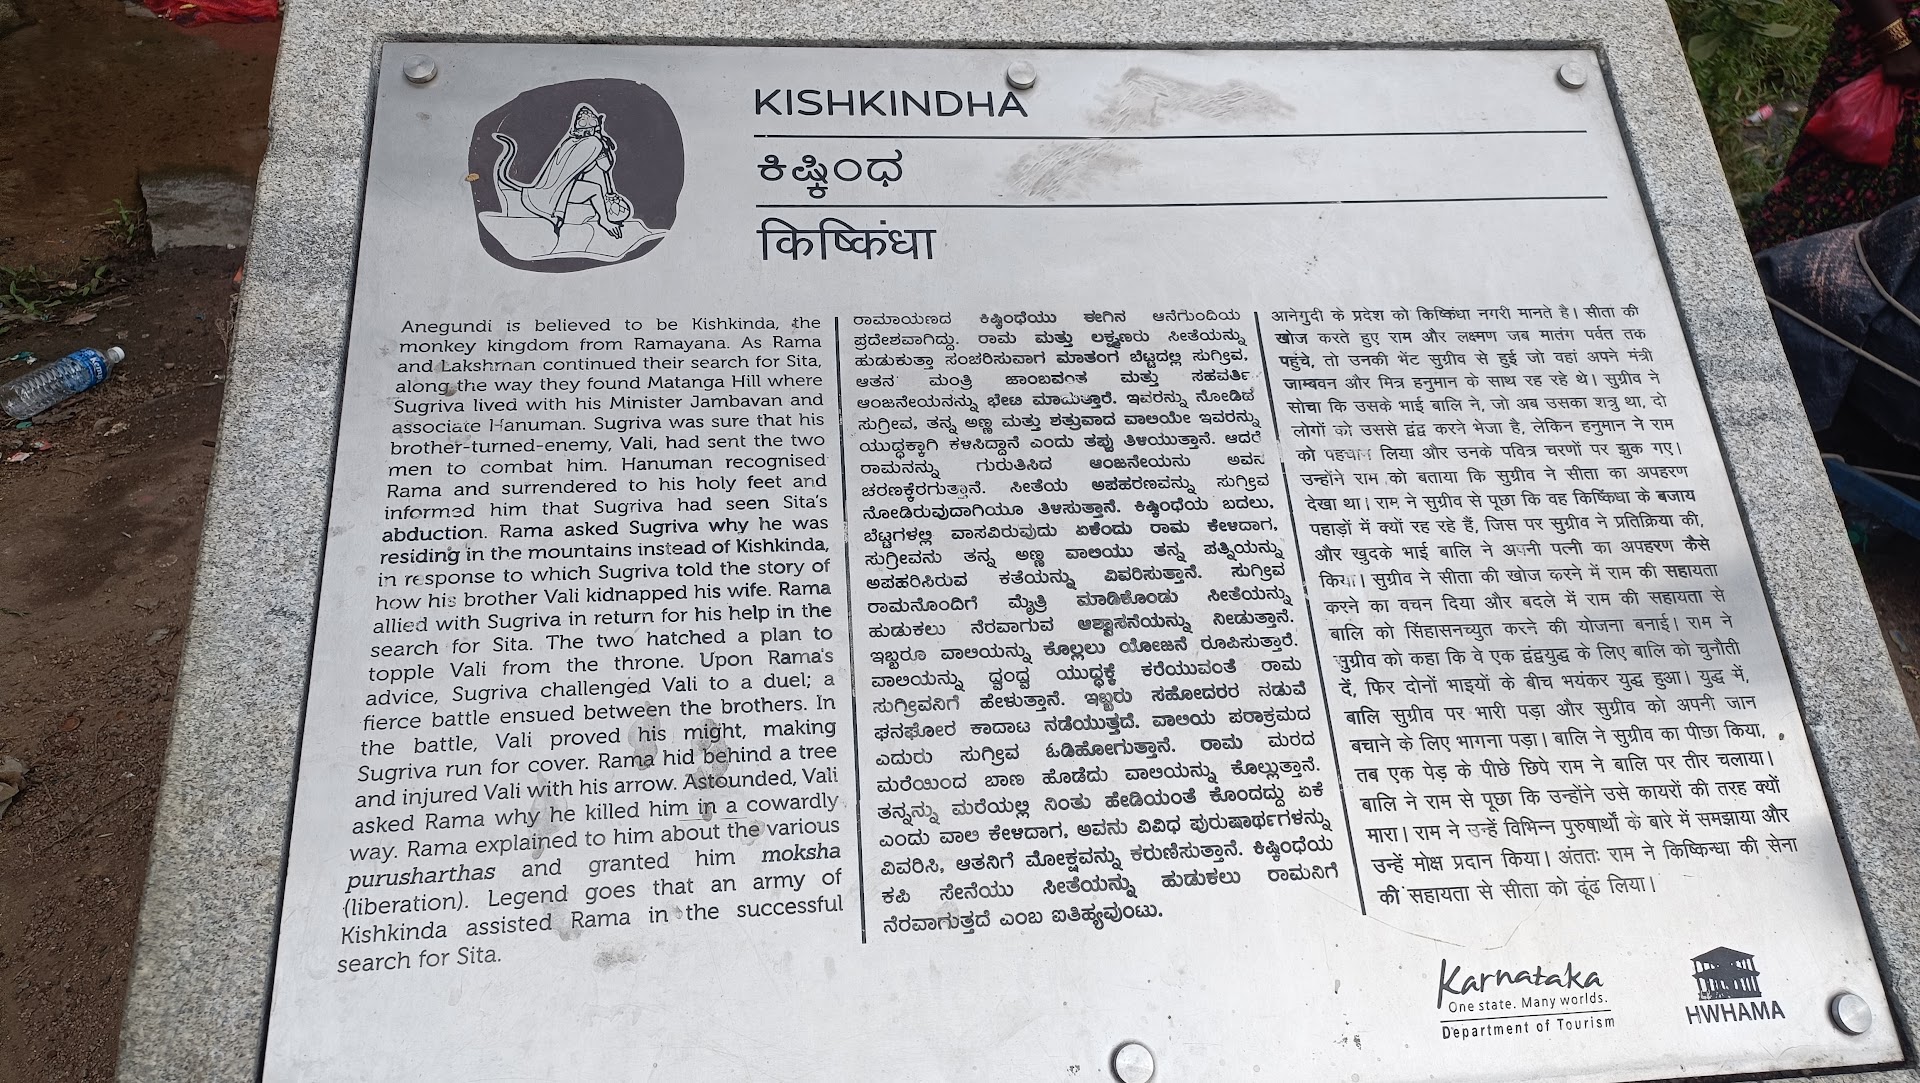 KISHKINDHA
ಕಿಷ್ಕಿಂಧ
किष्किंधा
Anegundi is believed to be Kishkinda, the
monkey kingdom from Ramayana. As Rama
and Lakshman continued their search for Sita,
along the way they found Matanga Hill where
Sugriva lived with his Minister Jambavan and
associate Hanuman. Sugriva was sure that his
brother-turned-enemy, Vali, had sent the two
men to combat him. Hanuman recognised
Rama and surrendered to his holy feet and
informed him that Sugriva had seen Sita's
abduction. Rama asked Sugriva why he was
residing in the mountains instead of Kishkinda,
in response to which Sugriva told the story of
how his brother Vali kidnapped his wife. Rama
allied with Sugriva in return for his help in the
search for Sita. The two hatched a plan to
topple Vali from the throne. Upon Rama's
advice, Sugriva challenged Vali to a duel; a
fierce battle ensued between the brothers. In
the battle, Vali proved his might, making
Sugriva run for cover. Rama hid behind a tree
and injured Vali with his arrow. Astounded, Vali
asked Rama why he killed him in a cowardly
way. Rama explained to him about the various
purusharthas and granted him moksha
(liberation). Legend goes that an army of
Kishkinda assisted Rama in the successful
search for Sita.
ರಾಮಾಯಣದ ಕಿಷ್ಕಿಂಧೆಯು ಈಗಿನ ಆನೆಗುಂದಿಯ
ಪ್ರದೇಶವಾಗಿದ್ದು. ರಾಮ ಮತ್ತು ಲಕ್ಷ್ಮಣರು ಸೀತೆಯನ್ನು
ಹುಡುಕುತ್ತಾ ಸಂಚರಿಸುವಾಗ ಮಾತಂಗ ಬೆಟ್ಟದಲ್ಲಿ ಸುಗ್ರೀವ,
ಆತನ ಮಂತ್ರಿ ಜಾಂಬವಂತ ಮತ್ತು ಸಹವರ್ತಿ
ಆಂಜನೇಯನನ್ನು ಭೇಟಿ ಮಾಡುತ್ತಾರೆ. ಇವರನ್ನು ನೋಡಿದ
ಸುಗ್ರೀವ, ತನ್ನ ಅಣ್ಣ ಮತ್ತು ಶತ್ರುವಾದ ವಾಲಿಯೇ ಇವರನ್ನು
ಯುದ್ಧಕ್ಕಾಗಿ ಕಳಿಸಿದ್ದಾನೆ ಎಂದು ತಪ್ಪು ತಿಳಿಯುತ್ತಾನೆ. ಆದರೆ
ರಾಮನನ್ನು ಗುರುತಿಸಿದ ಆಂಜನೇಯನು ಅವನ
ಚರಣಕ್ಕೆರಗುತ್ತಾನೆ. ಸೀತೆಯ ಅಪಹರಣವನ್ನು ಸುಗ್ರೀವ
ನೋಡಿರುವುದಾಗಿಯೂ ತಿಳಿಸುತ್ತಾನೆ. ಕಿಷ್ಕಿಂಧೆಯ ಬದಲು,
ಬೆಟ್ಟಗಳಲ್ಲಿ ವಾಸವಿರುವುದು ಏಕೆಂದು ರಾಮ ಕೇಳಿದಾಗ,
ಸುಗ್ರೀವನು ತನ್ನ ಅಣ್ಣ ವಾಲಿಯು ತನ್ನ ಪತ್ನಿಯನ್ನು
ಅಪಹರಿಸಿರುವ ಕತೆಯನ್ನು ವಿವರಿಸುತ್ತಾನೆ. ಸುಗ್ರೀವ
ರಾಮನೊಂದಿಗೆ ಮೈತ್ರಿ ಮಾಡಿಕೊಂಡು ಸೀತೆಯನ್ನು
ಹುಡುಕಲು ನೆರವಾಗುವ ಆಶ್ವಾಸನೆಯನ್ನು ನೀಡುತ್ತಾನೆ.
ಇಬ್ಬರೂ ವಾಲಿಯನ್ನು ಕೊಲ್ಲಲು ಯೋಜನೆ ರೂಪಿಸುತ್ತಾರೆ.
ವಾಲಿಯನ್ನು ದ್ವಂದ್ವ ಯುದ್ಧಕ್ಕೆ ಕರೆಯುವಂತೆ ರಾಮ
ಸುಗ್ರೀವನಿಗೆ ಹೇಳುತ್ತಾನೆ. ಇಬ್ಬರು ಸಹೋದರರ ನಡುವೆ
ಘನಘೋರ ಕಾದಾಟ ನಡೆಯುತ್ತದೆ. ವಾಲಿಯ ಪರಾಕ್ರಮದ
ಎದುರು ಸುಗ್ರೀವ ಓಡಿಹೋಗುತ್ತಾನೆ. ರಾಮ ಮರದ
ಮರೆಯಿಂದ ಬಾಣ ಹೊಡೆದು ವಾಲಿಯನ್ನು ಕೊಲ್ಲುತ್ತಾನೆ.
ತನ್ನನ್ನು ಮರೆಯಲ್ಲಿ ನಿಂತು ಹೇಡಿಯಂತೆ ಕೊಂದದ್ದು ಏಕೆ
ಎಂದು ವಾಲಿ ಕೇಳಿದಾಗ, ಅವನು ವಿವಿಧ ಪುರುಷಾರ್ಥಗಳನ್ನು
ವಿವರಿಸಿ, ಆತನಿಗೆ ಮೋಕ್ಷವನ್ನು ಕರುಣಿಸುತ್ತಾನೆ. ಕಿಷ್ಕಿಂಧೆಯ
ಕಪಿ ಸೇನೆಯು ಸೀತೆಯನ್ನು ಹುಡುಕಲು ರಾಮನಿಗೆ
ನೆರವಾಗುತ್ತದೆ ಎಂಬ ಐತಿಹ್ಯವುಂಟು.
आनेगुदी के प्रदेश को किष्किंधा नगरी मानते है। सीता की
खोज करते हुए राम और लक्ष्मण जब मातंग पर्वत तक
पहुंचे, तो उनकी भेंट सुग्रीव से हुई जो वहां अपने मंत्री
जाम्बवन और मित्र हनुमान के साथ रह रहे थे। सुग्रीव ने
सोचा कि उसके भाई बालि ने, जो अब उसका शत्रु था, दो
लोगों को उससे द्वंद्व करने भेजा है, लेकिन हनुमान ने राम
को पहचान लिया और उनके पवित्र चरणों पर झुक गए।
उन्होंने राम को बताया कि सुग्रीव ने सीता का अपहरण
देखा था। राम ने सुग्रीव से पूछा कि वह किष्किंधा के बजाय
पहाड़ों में क्यों रह रहे हैं, जिस पर सुग्रीव ने प्रतिक्रिया की,
और खुदके भाई बालि ने अपनी पत्नी का अपहरण कैसे
किया। सुग्रीव ने सीता की खोज करने में राम की सहायता
करने का वचन दिया और बदले में राम की सहायता से
बालि को सिंहासनच्युत करने की योजना बनाई। राम ने
सुग्रीव को कहा कि वे एक द्वंद्वयुद्ध के लिए बालि को चुनौती
दें, फिर दोनों भाइयों के बीच भयंकर युद्ध हुआ। युद्ध में,
बालि सुग्रीव पर भारी पड़ा और सुग्रीव को अपनी जान
बचाने के लिए भागना पड़ा। बालि ने सुग्रीव का पीछा किया,
तब एक पेड़ के पीछे छिपे राम ने बालि पर तीर चलाया।
बालि ने राम से पूछा कि उन्होंने उसे कायरों की तरह क्यों
मारा। राम ने उन्हें विभिन्न पुरुषार्थों के बारे में समझाया और
उन्हें मोक्ष प्रदान किया। अंततः राम ने किष्किन्धा की सेना
की सहायता से सीता को ढूंढ लिया।
Karnataka
One state. Many worlds.
Department of Tourism
HWHAMA